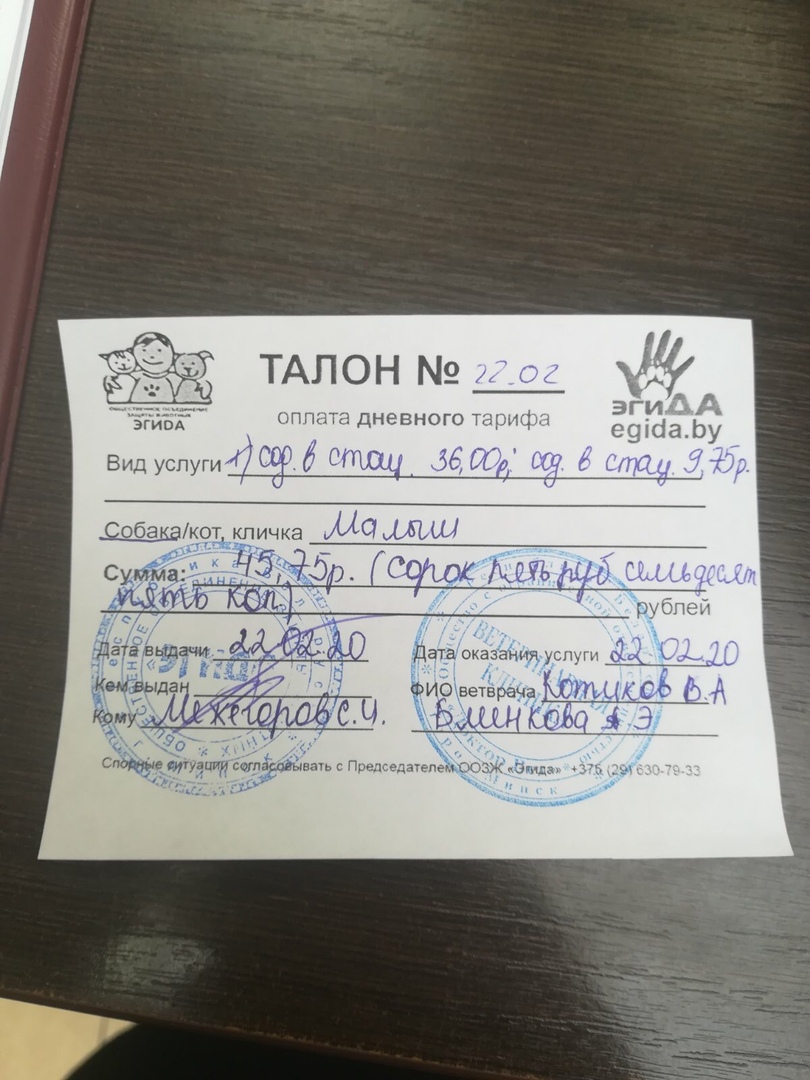 ОБЩЕСТВЕННОЕ ОБЪЕДИНЕНИЕ
ЗАЩИТЫ ЖИВОТНЫХ
ЭГИДА
ТАЛОН № 22.02
оплата дневного тарифа
ЭГИДА
egida.by
Вид услуги 1) сод. в стац. 36,00р; сод. в стац. 9,75р.
Собака/кот, кличка Малыш
Сумма: 45,75р. (сорок пять руб семьдесят
пять коп.) рублей
Дата выдачи 22.02.20
Дата оказания услуги 22.02.20
Кем выдан
ФИО ветврача Котиков В.А
Кому Межегоров С.И.
Блинкова Э
Спорные ситуации согласовывать с Председателем ООЗЖ «Эгида» +375 (29) 630-79-33